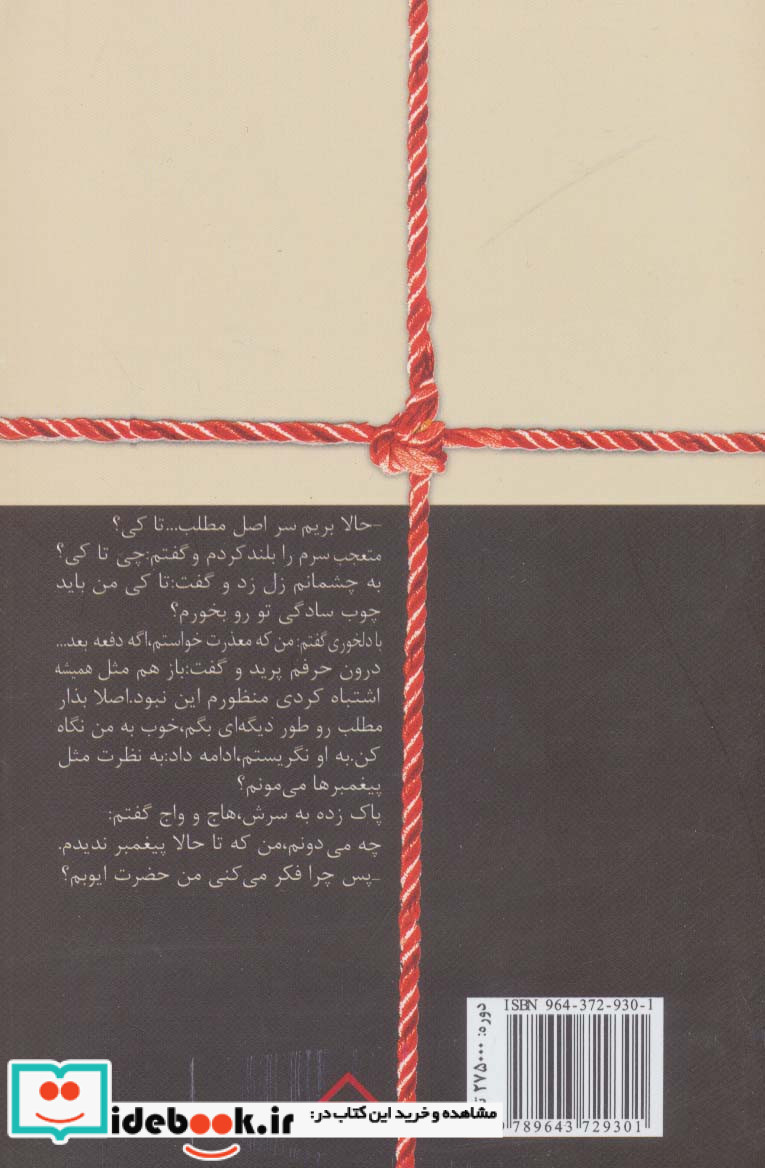 -حالا بریم سر اصل مطلب...تا کی؟
متعجب سرم را بلند کردم و گفتم:چی تا کی؟
به چشمانم زل زد و گفت:تا کی من باید
چوب سادگی تو رو بخورم؟
با دلخوری گفتم: من که معذرت خواستم،اگه دفعه بعد...
درون حرفم پرید و گفت:باز هم مثل همیشه
اشتباه کردی منظورم این نبود.اصلا بذار
مطلب رو طور دیگه‌ای بگم،خوب به من نگاه
کن.به او نگریستم،ادامه داد:به نظرت مثل
پیغمبرها می‌مونم؟
پاک زده به سرش،هاج و واج گفتم:
چه می‌دونم،من که تا حالا پیغمبر ندیدم.
-پس چرا فکر می‌کنی من حضرت ایوبم؟
ISBN 964-372-930-1
دوره: ۲۷۵۰۰۰
789643 729301
مشاهده و خرید این کتاب در:
idebook.ir